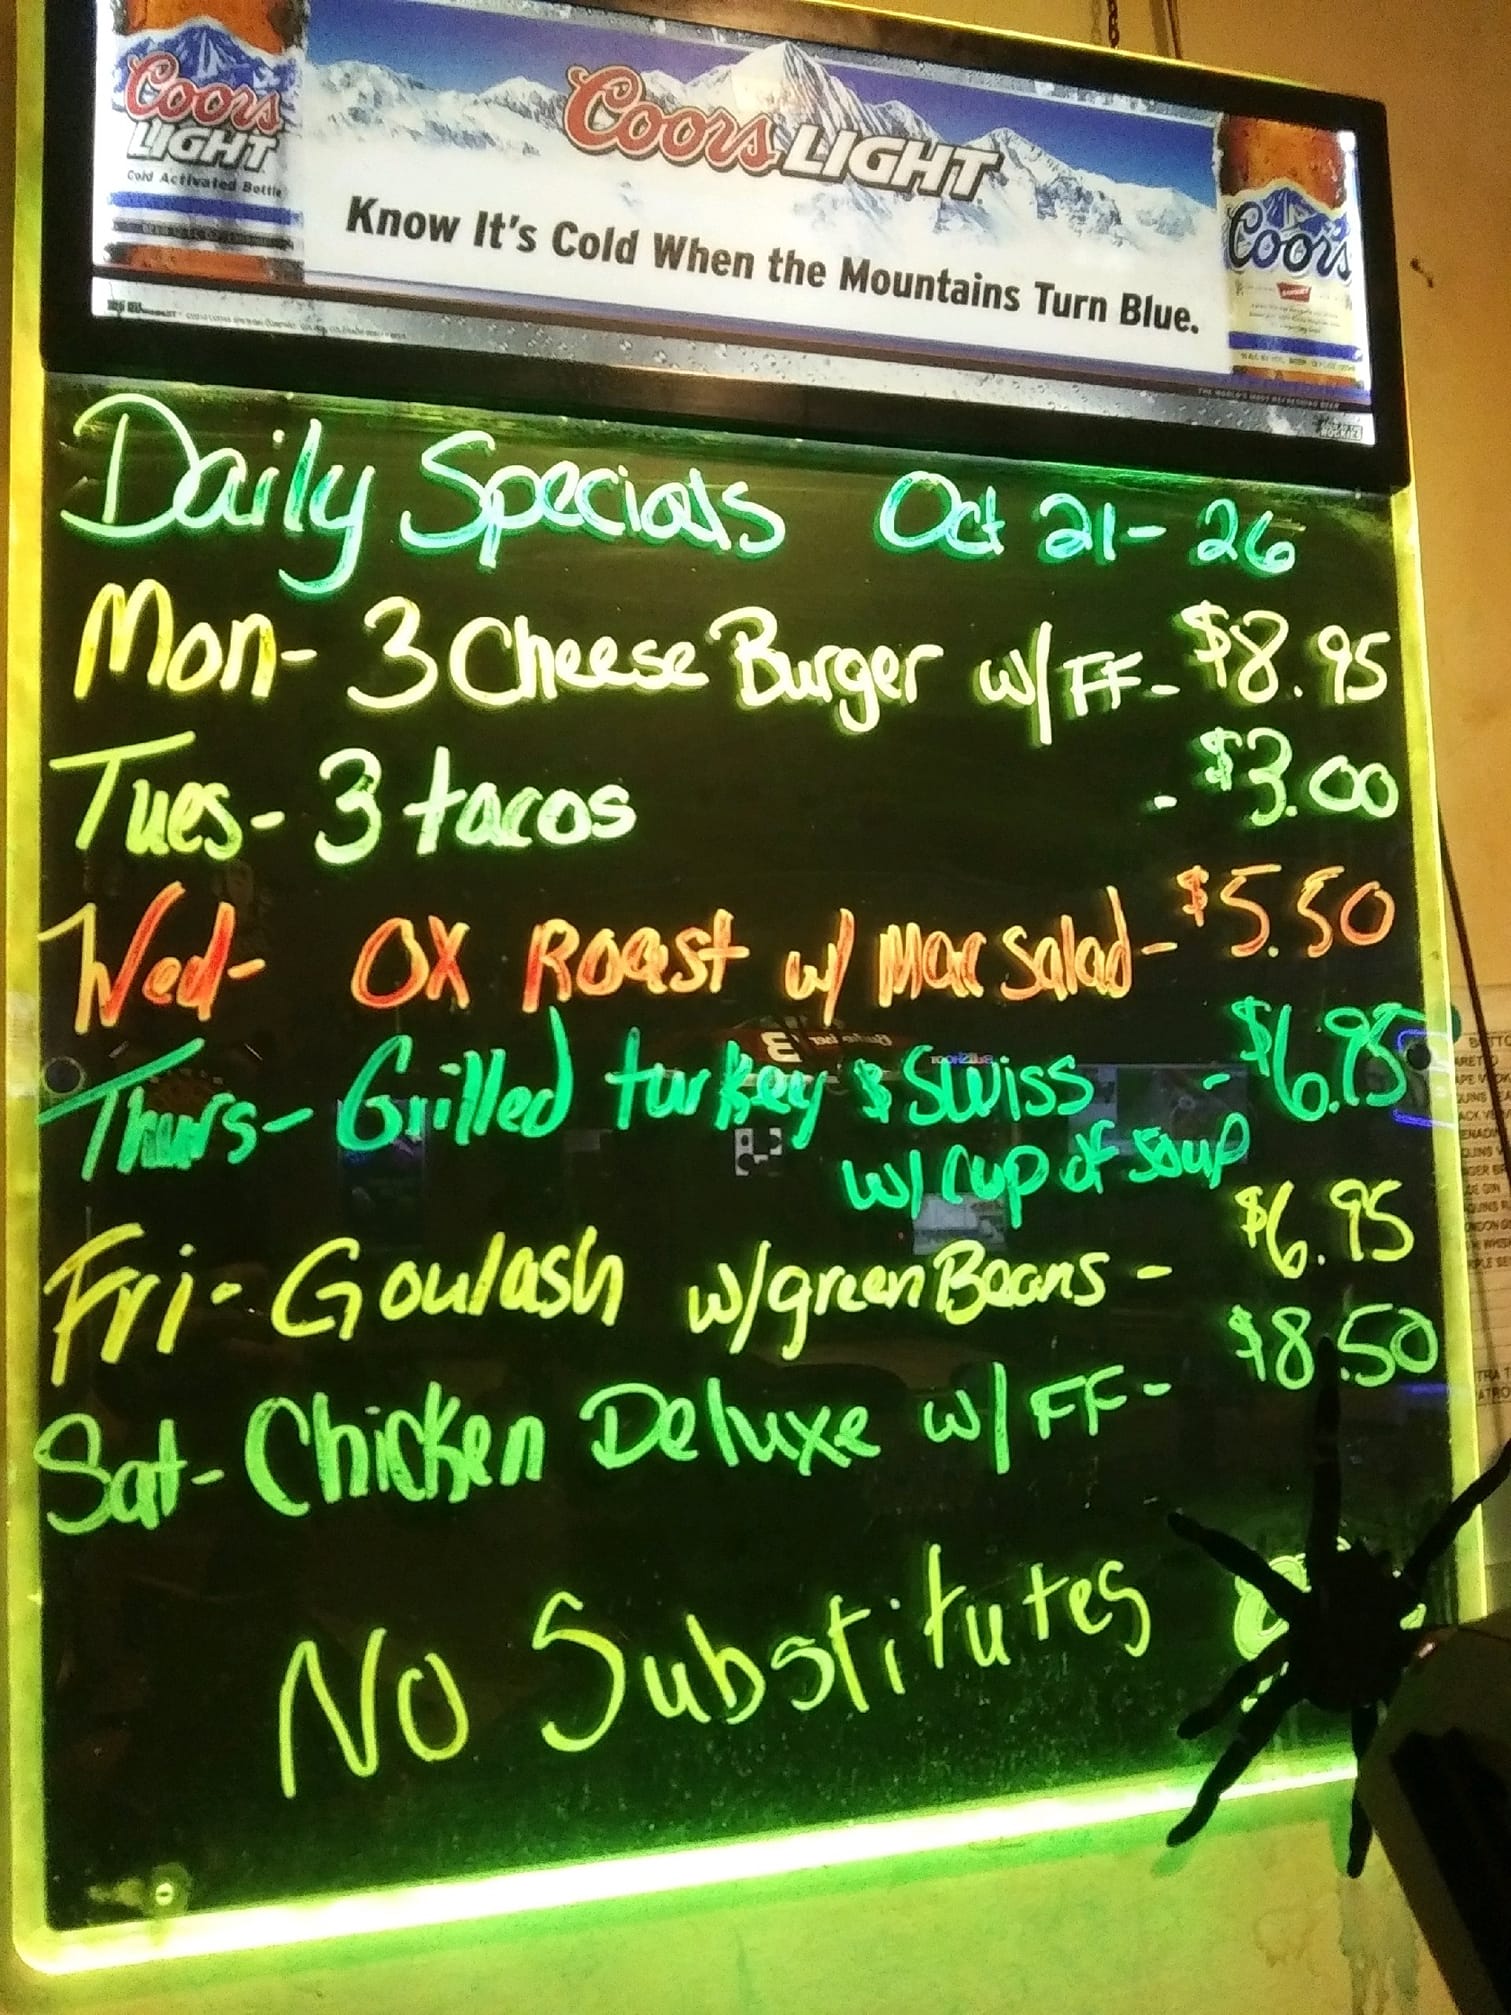 Coors
LIGHT
Cold Activated Bottle
Coors LIGHT
Know It's Cold When the Mountains Turn Blue.
Coors
BANQUET
Daily Specials Oct 21-26
Mon- 3 Cheese Burger w/ FF- $8.95
Tues- 3 tacos - $3.00
Wed- OX Roast w/ Mac Salad- $5.50
Thurs- Grilled turkey & Swiss - $6.95
w/ cup of soup
Fri- Goulash w/green Beans - $6.95
Sat- Chicken Deluxe w/ FF- $8.50
No Substitutes